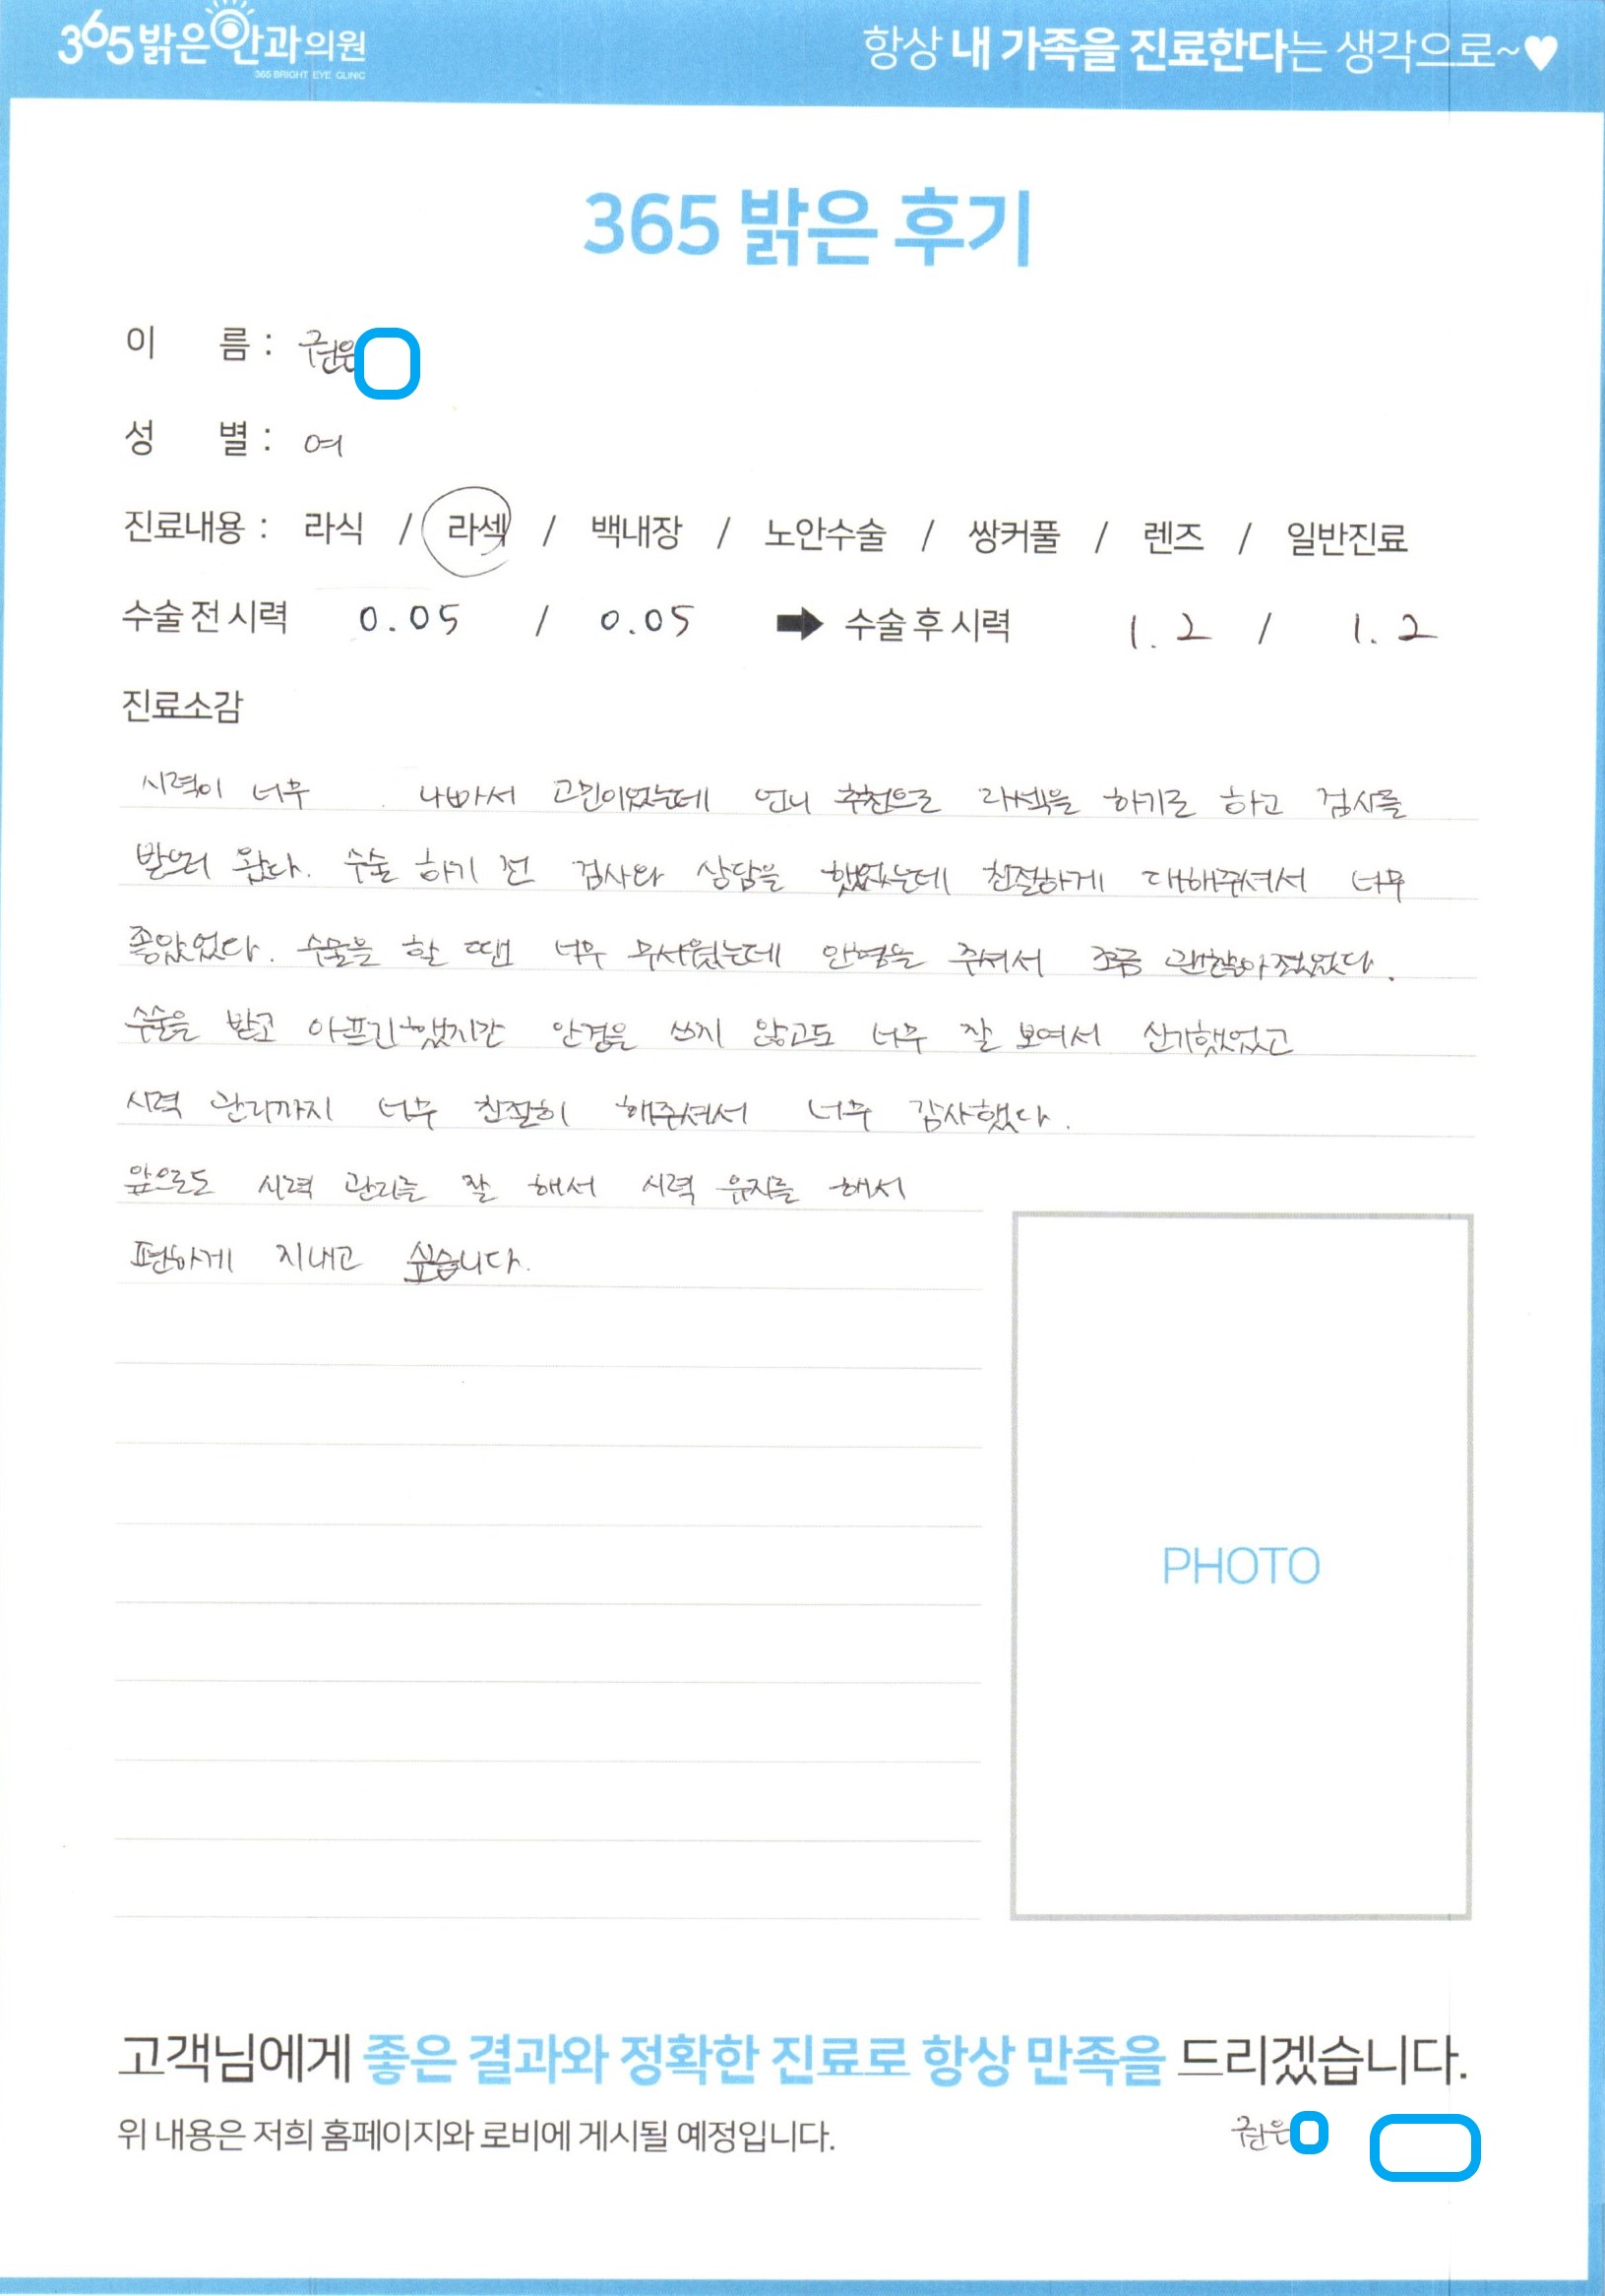 365 밝은안과의원
365 BRIGHT EYE CLINIC
항상 내 가족을 진료한다는 생각으로~♥
365 밝은 후기
이 름 :
성 별 : 여
진료내용 : 라식 / 라섹 / 백내장 / 노안수술 / 쌍커풀 / 렌즈 / 일반진료
수술 전 시력 0.05 / 0.05 ➡ 수술 후 시력 1.2 / 1.2
진료소감
시력이 너무 나빠서 고민이었는데 언니 추천으로 라섹을 하기로 하고 검사를
받으러 왔다. 수술 하기 전 검사와 상담을 했었는데 친절하게 대해주셔서 너무
좋았었다. 수술을 할 땐 너무 무서웠는데 인형을 주셔서 조금 괜찮아졌었다.
수술을 받고 아프긴했지만 안경을 쓰지 않고도 너무 잘 보여서 신기했었고
시력 관리까지 너무 친절히 해주셔서 너무 감사했다.
앞으로도 시력 관리를 잘 해서 시력 유지를 해서
편하게 지내고 싶습니다.
PHOTO
고객님에게 좋은 결과와 정확한 진료로 항상 만족을 드리겠습니다.
위 내용은 저희 홈페이지와 로비에 게시될 예정입니다.